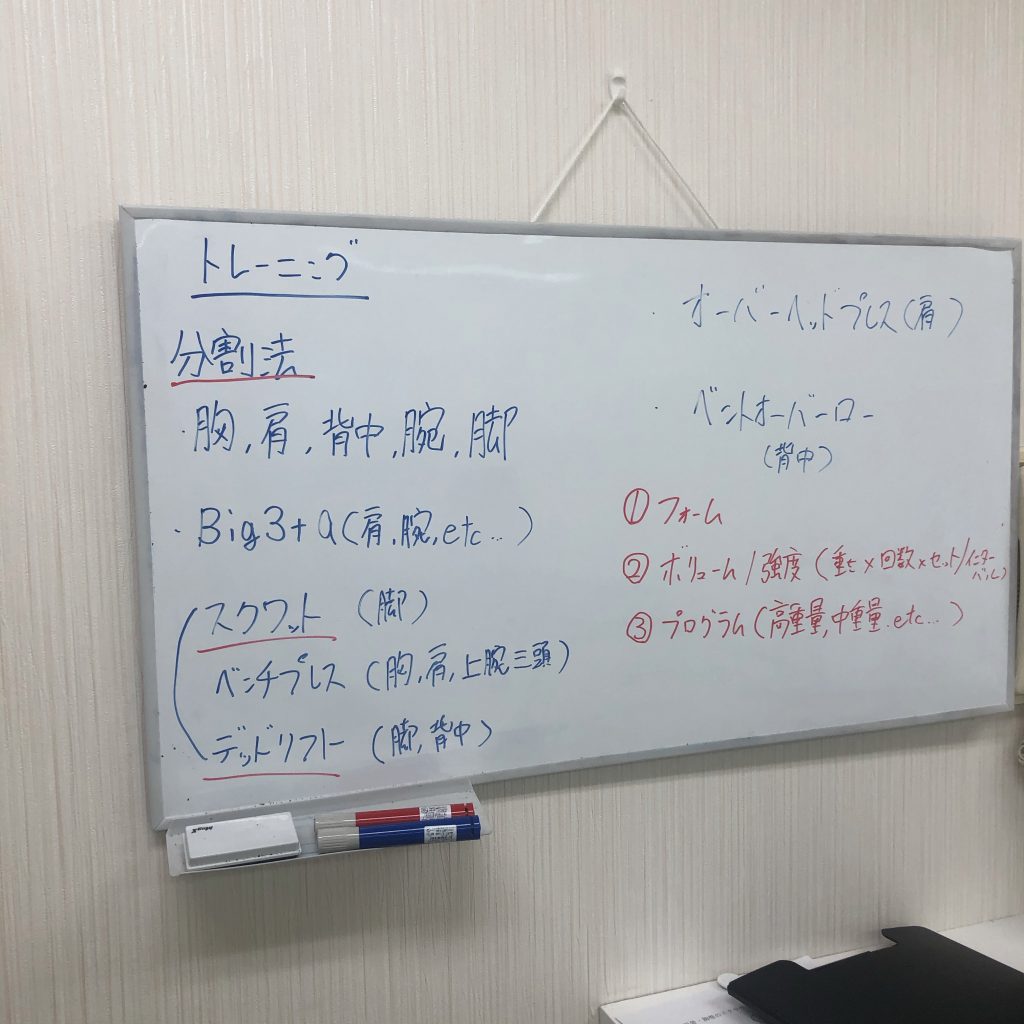 トレーニング
分割法
・胸,肩,背中,腕,脚
・Big3+a(肩,腕,etc...)
スクワット (脚)
ベンチプレス (胸,肩,上腕三頭)
デッドリフト (脚,背中)
・オーバーヘッドプレス(肩)
・ベントオーバーロー
(背中)
① フォーム
② ボリューム/強度 (重さ×回数×セット/インターバル)
③ プログラム(高重量,中重量.etc...)